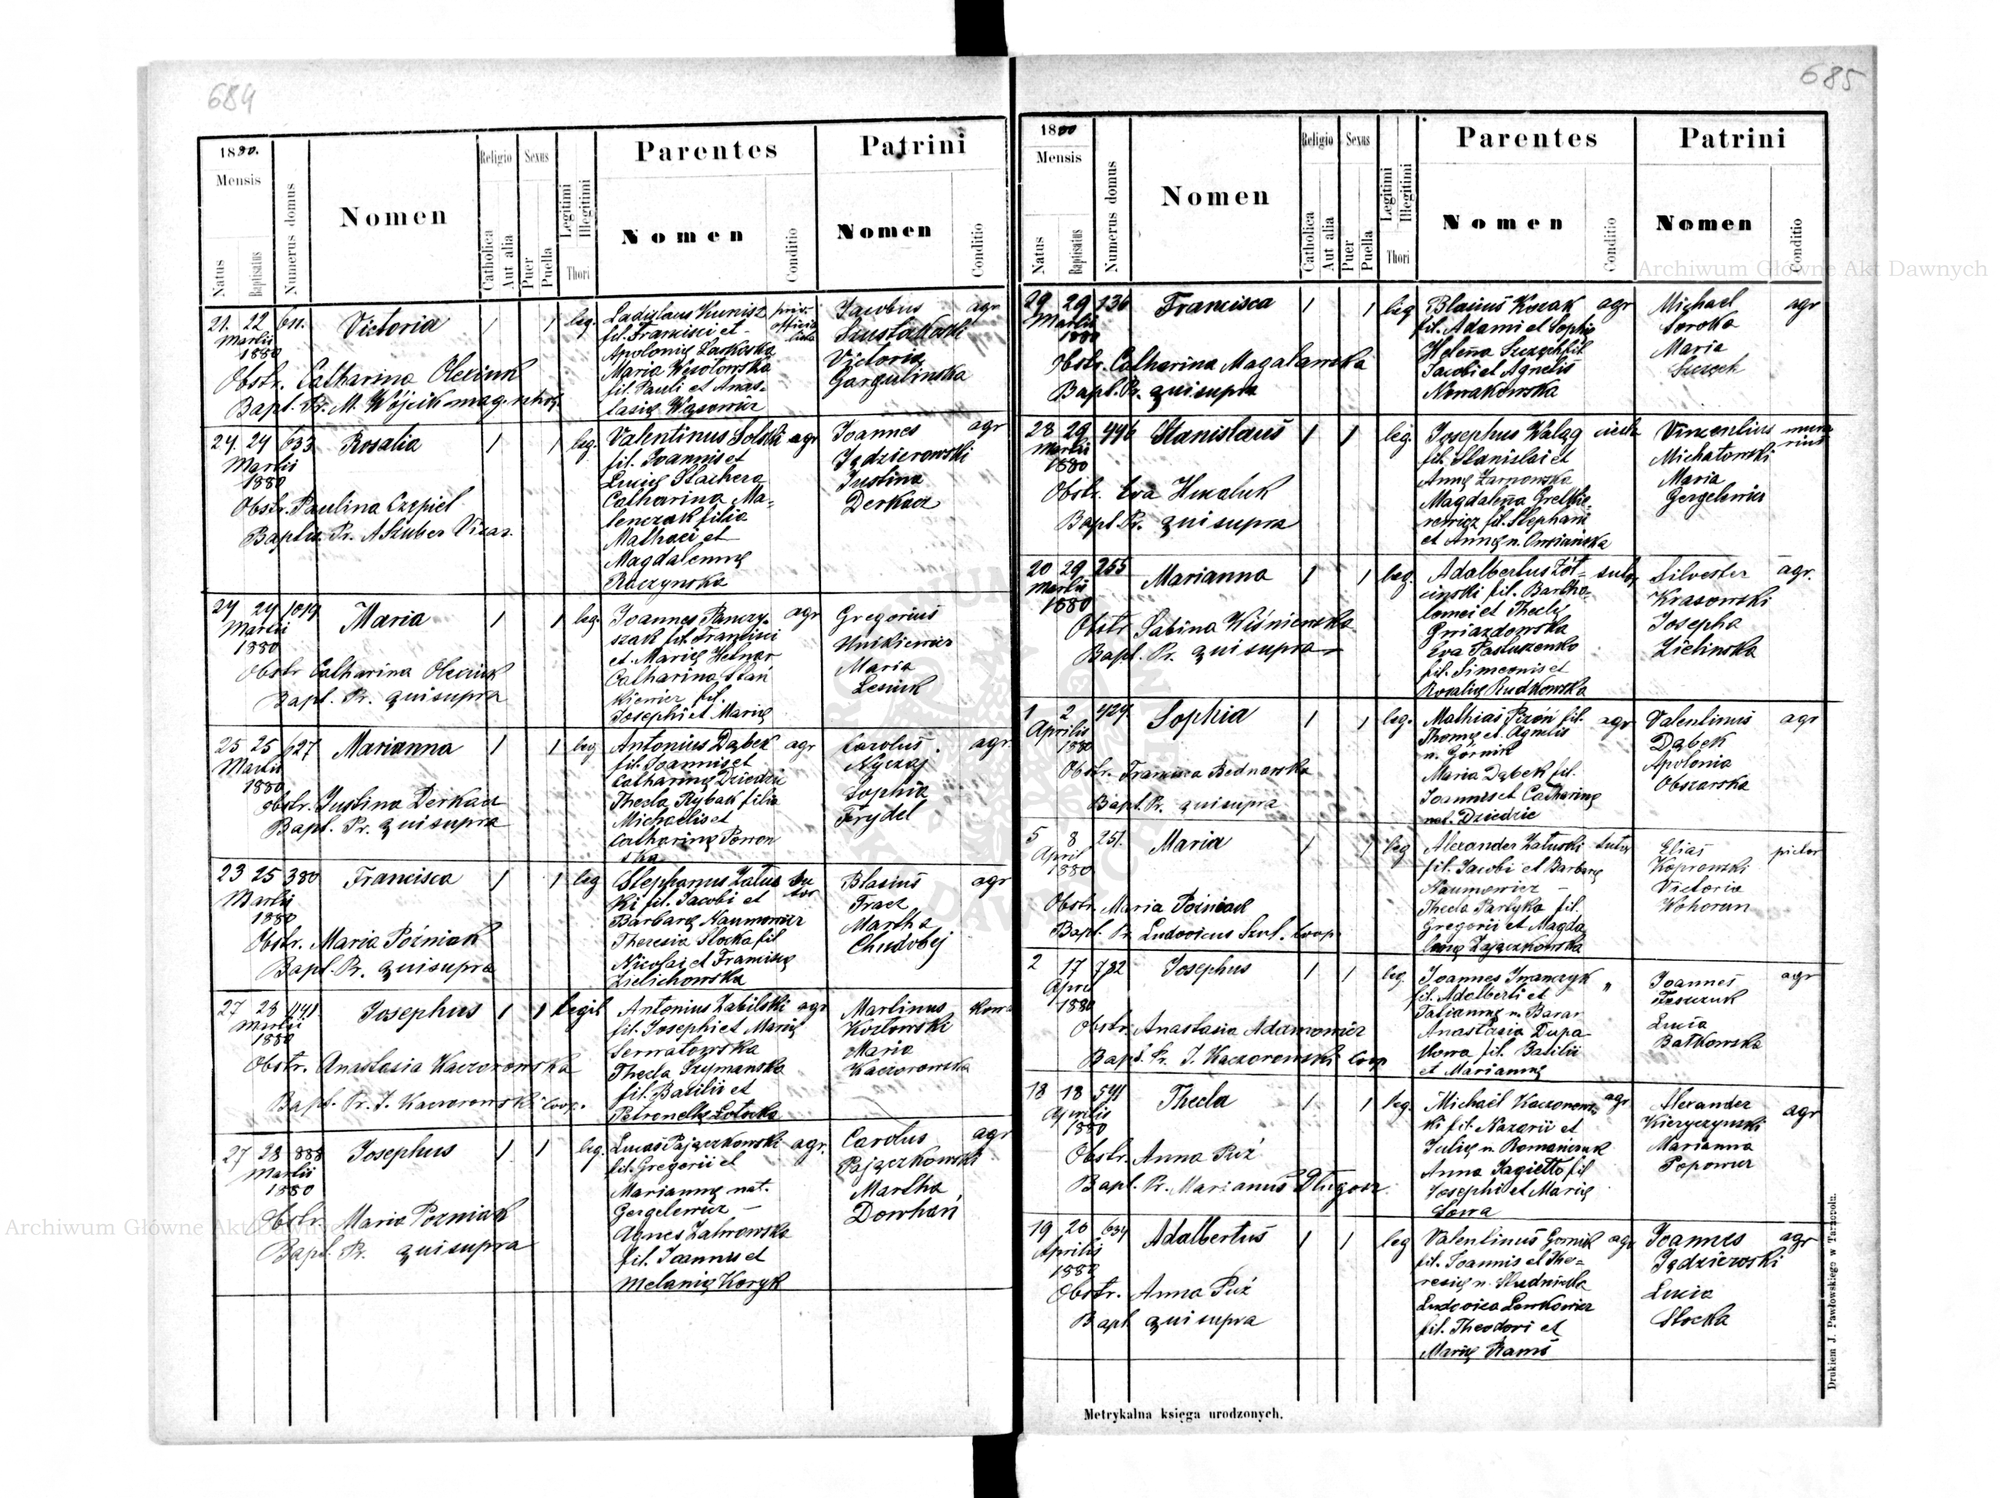 684
1880.
Mensis
Natus
Baptisatus
Numerus domus
Nomen
Religio
Catholica
Aut alia
Sexus
Puer
Puella
Legitimi
Illegitimi
Thori
Parentes
Nomen
Conditio
Patrini
Nomen
Conditio
21. 22 611. Victoria 1 1 leg. Ladislaus Kunisz priv. Jacobus agr
Martii fil. Francisci et officia
1880 Apolonię Laskoska lista Victoria
Obstr. Catharina Oleciuk Maria Gargulinska
Bapt. Pr. M. Wójcik fil. Pauli et Anas-
tasię Wąsowicz
24. 24 633 Rosalia 1 1 leg. Valentinus Solski agr Joannes agr
Martii fil. Joannis et Jądzierowski
1880 Lucię Stachera Justina
Obstr. Paulina Czepiel Catharina Ma- Derkacz
Baptis. Pr. A Szuber Vicar. lenczak filia
Mathaei et
Magdalennę
Raczynska
24 24 1019 Maria 1 1 leg. Joannes Panczy- agr Gregorius
Martii szak fil. Francisci
1880 et Marię Maria
Obstr Catharina Oleciuk Catharina Stan Lesiuk
Bapt. Pr. qui supra kiewicz fil.
Josephi et Marię
25 25 627 Marianna 1 1 leg Antonius Dąbek agr Carolus agr.
Martii fil. Joannis et Nyczaj
1880 Catharinę Dziedzic Sophia
Obstr. Justina Derkacz Thecla Rybak filia Frydel
Bapt. Pr. qui supra Michaelis et
Catharinę
23 25 380 Francisca 1 1 leg Stephanus Zatus su Blasius agr
Martii ki fil. Jacobi et tor Tracz
1880 Barbarę Naumowicz Martha
Obstr. Maria Poźniak Theresia Slocka fil Chudobej
Bapt. Pr. qui supra Nicolai et Franciscę
Zielichowska
27 28 441 Josephus 1 1 legit Antonius Zabilski agr Martinus
Martii fil. Josephi et Marię Kozłowski
1880 Serwatowska Maria
Obstr. Anastasia Kaczorowska Thecla Szymanska Kaczorowska
Bapt. Pr. J. Kaczorowski coop. fil. Basilii et
Petronelę
27 28 888 Josephus 1 1 leg. Lucas Pajączkowski agr. Carolus agr
Martii fil. Gregorii et Pajączkowski
1880 Mariannę nat. Martha
Obstr. Maria Pozniak Gergelewicz – Dowhań
Bapt. Pr. qui supra Agnes
fil. Joannis et
Melanię Koryk
685
1880
Mensis
Natus
Baptisatus
Numerus domus
Nomen
Religio
Catholica
Aut alia
Sexus
Puer
Puella
Legitimi
Illegitimi
Thori
Parentes
Nomen
Conditio
Patrini
Nomen
Conditio
29 29 136 Francisca 1 1 leg Blasius Kozak agr Michael agr
Martii fil. Adami et Sophię Soroka
1880 Helena Szczęch fil Maria
Obstr. Catharina Magalanska Jacobi et Agnetis Szczęch
Bapt. Pr. qui supra Nowakowska
28 29 446 Stanislaus 1 1 leg. Josephus Waląg Vincentius mura
Martii fil. Stanislai et Michałowski rius
1880 Annę Żarnowska Maria
Obstr. Eva Magdalena Gergelewicz
Bapt. Pr. qui supra fil. Stephani
et Annę n.
20 29 255 Marianna 1 1 leg. Adalbertus Żół- sutor Silvester agr.
Martii cinski fil. Bartho- Krasowski
1880 lomei et Theclę Josepha
Obstr Sabina Wiśniewska Gwiazdowska Zielinska
Bapt. Pr. qui supra Eva Pastuszenko
fil. Simeonis et
Rosalię Rudkowska
1 2 424 Sophia 1 1 leg. Mathias fil. agr Valentinus agr
Aprilis Thomę et Agnetis Dąbek
1880 n. Górnik Apolonia
Obstr. Francisca Bednarska Maria Dąbek fil. Obszarska
Bapt. Pr. qui supra Joannis et Catharinę
nat. Dziedzic
5 8 251. Maria 1 1 leg Alexander Zatuski sutor Elias pictor
April fil. Jacobi et Barbarę Koprowski
1880 Naumowicz – Victoria
Obstr. Maria Poźniak Thecla Partyka fil. Wohoran
Bapt. Pr Ludovicus Szul. Coop. Gregorii et Magda
lenę Zajączkowska
2 17 732 Josephus 1 1 leg. Joannes Iwanczyk " Joannes agr
April fil. Adalberti et
1880 Tatiannę n. Baran Lucia
Obstr. Anastasia Adamowicz Anastasia Dupa Bałkowska
Bapt. Pr. J. Kaczorowski Coop fil. Basilii
et Mariannę
18 18 541 Thecla 1 1 leg. Michael Kaczorows- agr Alexander agr
Aprilis ki fil. Nazarii et Kiczyczynski
1880 Julię n. Romańczuk Marianna
Obstr. Anna Puź Anna Jagiełło fil. Popowicz
Bapt. Pr. Marianus Długosz Josephi et Marię
Sowa
19 20 634 Adalbertus 1 1 leg Valentinus Gornik agr Joannes agr
Aprilis fil. Joannis et The- Jądzierowski
1880 resię n. Lucia
Obstr. Anna Puź Ludovica Lewkowicz Slocka
Bapt qui supra fil. Theodori et
Marię
Metrykalna księga urodzonych.
Drukiem J. Pawłowskiego w Tarnopolu.
Archiwum Główne Akt Dawnych
Archiwum Główne Akt Dawnych